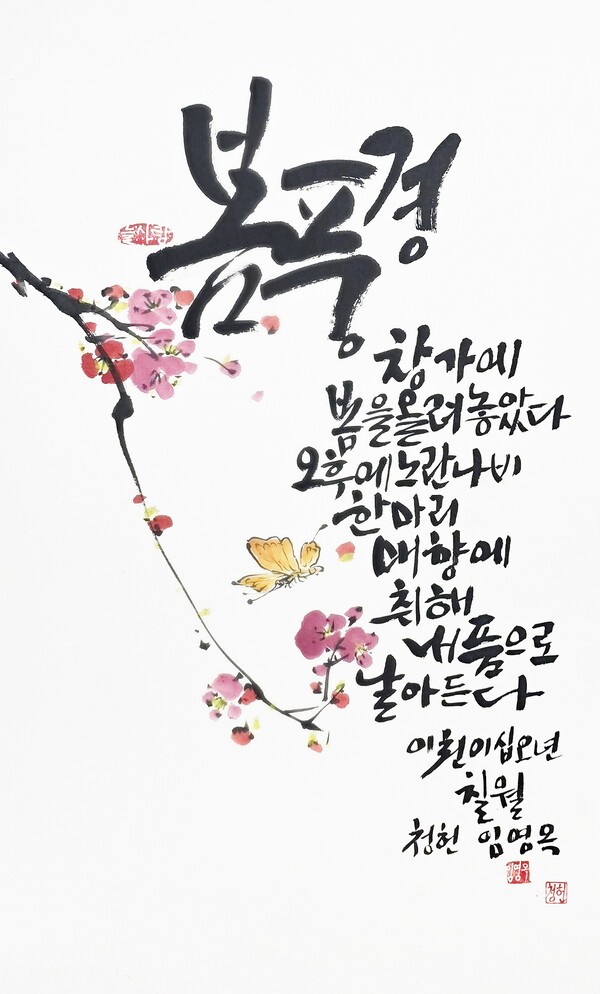 봄풍경
창가에
봄을 올려놓았다
오후에 노란나비
한마리
매향에
취해
내품으로
날아든다
이천이십오년
칠월
청헌 임영옥
임영옥
청헌